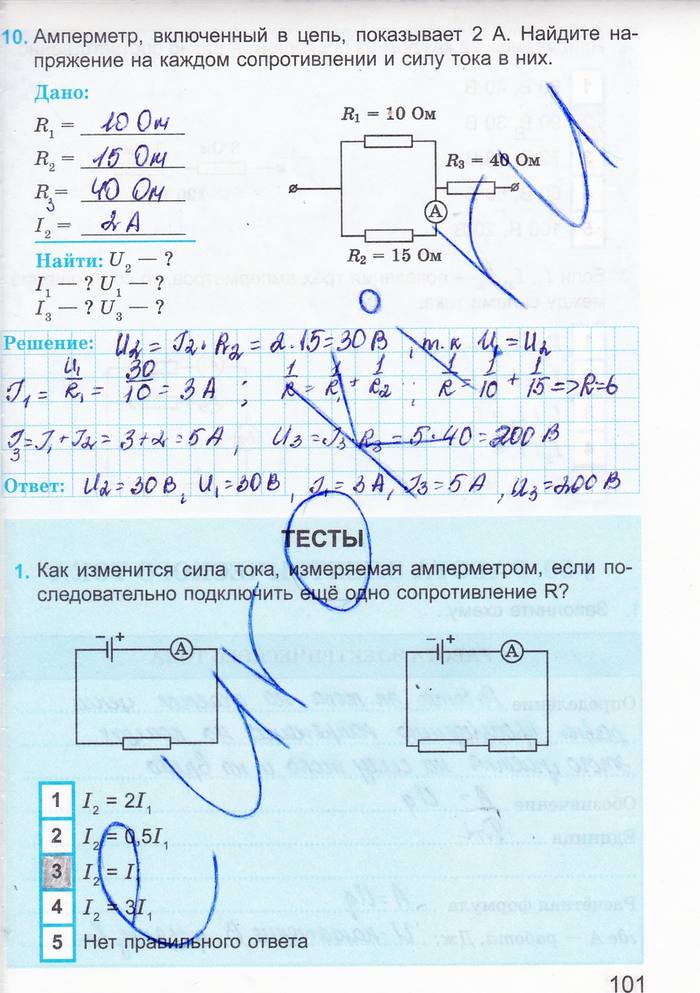 10. Амперметр, включенный в цепь, показывает 2 А. Найдите на-
пряжение на каждом сопротивлении и силу тока в них.
Дано:
R₁ = 10 Ом
R₂ = 15 Ом
R₃ = 40 Ом
I₂ = 2 А
Найти: U₂ — ?
I₁ — ? U₁ — ?
I₃ — ? U₃ — ?
R₁ = 10 Ом
R₃ = 40 Ом
А
R₂ = 15 Ом
Решение: U₂ = I₂ · R₂ = 2 · 15 = 30 В, т.к U₁ = U₂
I₁ = U₁/R₁ = 30/10 = 3 А ; 1/R = 1/R₁ + 1/R₂ ; 1/R = 1/10 + 1/15 => R = 6
I₃ = I₁ + I₂ = 3 + 2 = 5 А, U₃ = I₃ · R₃ = 5 · 40 = 200 В
Ответ: U₂ = 30 В, U₁ = 30 В, I₁ = 3 А, I₃ = 5 А, U₃ = 200 В
ТЕСТЫ
1. Как изменится сила тока, измеряемая амперметром, если по-
следовательно подключить ещё одно сопротивление R?
– + А
– + А
1 I₂ = 2I₁
2 I₂ = 0,5I₁
3 I₂ = I₁
4 I₂ = 3I₁
5 Нет правильного ответа
101